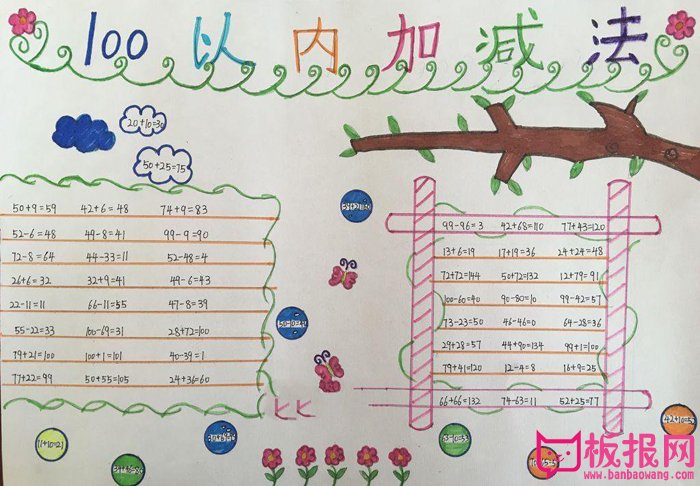 100以内加减法
20+10=30
50+25=75
50+9=59 42+6=48 74+9=83
52-6=48 49-8=41 99-9=90
72-8=64 44-33=11 52-48=4
26+6=32 32+9=41 49-6=43
22-11=11 66-11=55 47-8=39
55-22=33 100-69=31 28+72=100
79+21=100 100+1=101 40-39=1
77+22=99 50+55=105 24+36=60
99-96=3 42+68=110 77+43=120
13+6=19 17+19=36 24+24=48
72+72=144 50+72=132 12+79=91
100-60=40 90-80=10 99-42=57
73-23=50 46-46=0 64-28=36
29+28=57 44+90=134 99+1=100
79+41=120 12-4=8 16+9=25
66+66=132 74-63=11 52+25=77
11+10=21
板报网
www.banbaowang.com